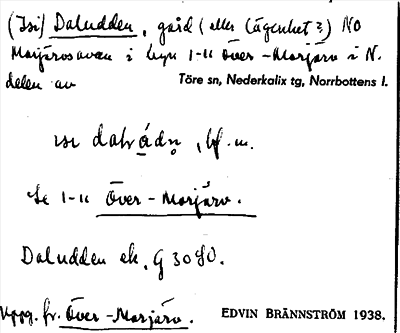 (Isi) Daludden, gård (eller lägenhet?) NO
Morjärvsavan i byn 1-11 Över-Morjärv i N.
delen av Töre sn, Nederkalix tg, Norrbottens l.
bf. m.
Se 1-11 Över-Morjärv.
Daludden ek. G 3080.
Uppg. fr. Över-Morjärv. EDVIN BRÄNNSTRÖM 1938.